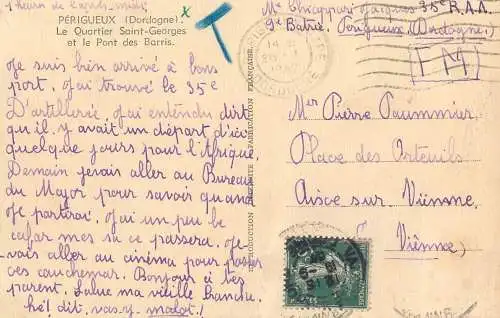 1 heure de l'après midi
PÉRIGUEUX (Dordogne).
Le Quartier Saint-Georges
et le Pont des Barris.
Je suis bien arrivé à bons
port, j'ai trouvé le 35e
D'artillerie, j'ai entendu dirt
qu'il y avait un départ d'ici
quelque jours pour l'Afrique.
Demain j'erais aller au Bureau
du Major pour savoir quand
je partirai, j'ai un peu le
cafar mes sa ce passera. Je
vais aller au cinéma pour passer
ces cauchemar. Bonjour à tes
parent. Salue ma vieille branche
hé! dit, vas-y
REPRODUCTION INTERDITE
FABRICATION FRANÇAISE
T
Mr Chiappari Jacques 35e R.A.A.
9e Batrie, Périgueux (Dordogne)
F M
Mer Pierre Paummier,
Place des
sur Vienne,
Vienne,